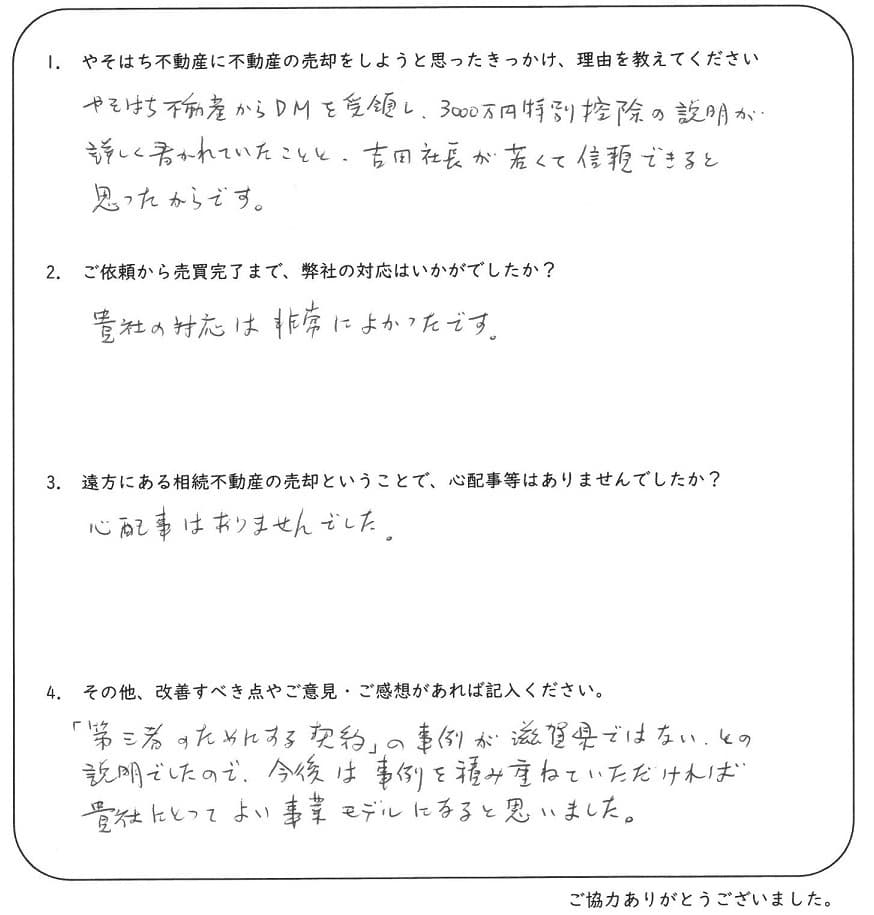 1. やそはち不動産に不動産の売却をしようと思ったきっかけ、理由を教えてください
やそはち不動産からDMを受領し、3000万円特別控除の説明が
詳しく書かれていたことと、吉田社長が若くて信頼できると
思ったからです。
2. ご依頼から売買完了まで、弊社の対応はいかがでしたか？
貴社の対応は非常によかったです。
3. 遠方にある相続不動産の売却ということで、心配事等はありませんでしたか？
心配事はありませんでした。
4. その他、改善すべき点やご意見・ご感想があれば記入ください。
「第三者のためにする契約」の事例が滋賀県ではない、との
説明でしたので、今後は事例を積み重ねていただければ
貴社にとってよい事業モデルになると思いました。
ご協力ありがとうございました。